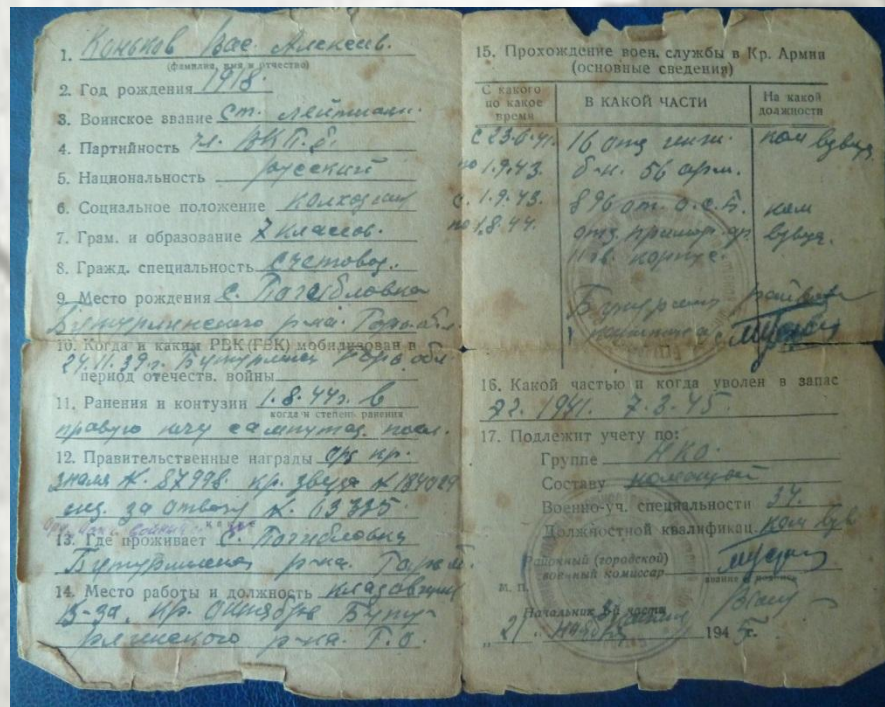 1. Коньков Вас. Алексеев.
(фамилия, имя и отчество)
2. Год рождения 1918.
3. Воинское звание ст. лейтнант.
4. Партийность чл. ВКП.б.
5. Национальность русский
6. Социальное положение колхозник
7. Грам. и образование 7 классов.
8. Гражд. специальность счетовод.
9. Место рождения с. Погибловка
Бутурлинского р-на. Горь. обл.
10. Когда и каким РВК (ГВК) мобилизован в
24.11.39 г. Бутурлинск Горь. обл.
период отечеств. войны
11. Ранения и контузии 1.8.44 г. в
когда и степень ранения
правую
12. Правительственные награды орд. кр.
знамя N. 87998. кр. звезда N
за отвагу N. 63335
13. Где проживает с. Погибловка
Бутурлинского р-на. Горь.
14. Место работы и должность кладовщик
к-за. кр. октябрь Буту-
рлинского р-на. Г.О.
15. Прохождение воен. службы в Кр. Армии
(основные сведения)
С какого по какое время
В КАКОЙ ЧАСТИ
На какой должности
с 23.6.41. 16 отд. инж. ком взвод.
по 1.9.43. б-н. 56 арм.
с. 1.9.43. 896 от. о.с.б. ком
по 1.8.44. отд. примор. ар. взвод.
корпус.
16. Какой частью и когда уволен в запас
7.3.45
17. Подлежит учету по:
Группе НКО.
Составу
Военно-уч. специальности 34.
Должностной квалификац. ком взв
Районный (городской)
военный комиссар
звание и подпись
М. П.
Начальник 3-й части
„21" ноября 1945 г.